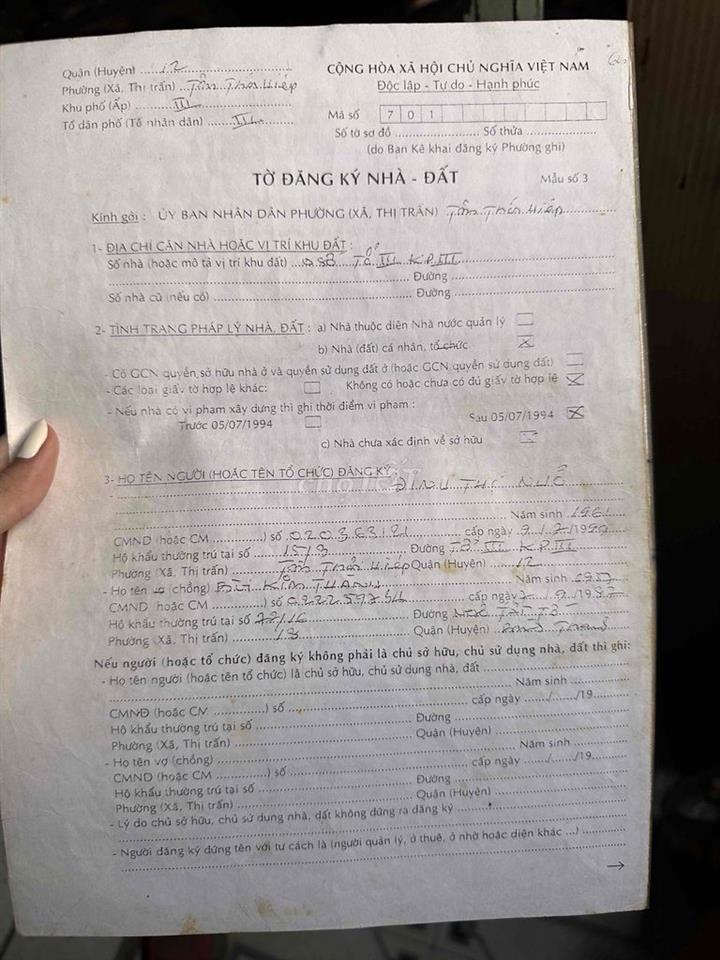 Quận (Huyện) ....12....
Phường (Xã, Thị trấn) Tân Thới Hiệp
Khu phố (Ấp) III
Tổ dân phố (Tổ nhân dân) III
CỘNG HÒA XÃ HỘI CHỦ NGHĨA VIỆT NAM
Độc lập - Tự do - Hạnh phúc
Mã số 7 0 1
Số tờ sơ đồ .................... Số thửa ....................
(do Ban Kê khai đăng ký Phường ghi)
TỜ ĐĂNG KÝ NHÀ - ĐẤT Mẫu số 3
Kính gởi : ỦY BAN NHÂN DÂN PHƯỜNG (XÃ, THỊ TRẤN) Tân Thới Hiệp
1- ĐỊA CHỈ CĂN NHÀ HOẶC VỊ TRÍ KHU ĐẤT :
Số nhà (hoặc mô tả vị trí khu đất) Tổ III K.P.III
Đường
Số nhà cũ (nếu có) .................... Đường ....................
2- TÌNH TRẠNG PHÁP LÝ NHÀ, ĐẤT : a) Nhà thuộc diện Nhà nước quản lý
b) Nhà (đất) cá nhân, tổ chức
- Có GCN quyền sở hữu nhà ở và quyền sử dụng đất ở (hoặc GCN quyền sử dụng đất)
- Các loại giấy tờ hợp lệ khác: Không có hoặc chưa có đủ giấy tờ hợp lệ
- Nếu nhà có vi phạm xây dựng thì ghi thời điểm vi phạm :
Trước 05/07/1994 Sau 05/07/1994
c) Nhà chưa xác định về sở hữu
3- HỌ TÊN NGƯỜI (HOẶC TÊN TỔ CHỨC) ĐĂNG KÝ
ĐINH THỊ NHỎ
Năm sinh 1961
CMND (hoặc CM ............) số 020363121 cấp ngày 9/7/1990
Hộ khẩu thường trú tại số 157/3 Đường Tổ III K.P.III
Phường (Xã, Thị trấn) Tân Thới Hiệp Quận (Huyện) 12
- Họ tên vợ (chồng) BÙI KIM THANH Năm sinh 1957
CMND (hoặc CM ............) số cấp ngày
Hộ khẩu thường trú tại số 72/16 Đường
Phường (Xã, Thị trấn) 13 Quận (Huyện)
Nếu người (hoặc tổ chức) đăng ký không phải là chủ sở hữu, chủ sử dụng nhà, đất thì ghi:
- Họ tên người (hoặc tên tổ chức) là chủ sở hữu, chủ sử dụng nhà, đất
Năm sinh
CMND (hoặc CM ............) số .................... cấp ngày ....../....../19......
Hộ khẩu thường trú tại số .................... Đường ....................
Phường (Xã, Thị trấn) .................... Quận (Huyện) ....................
- Họ tên vợ (chồng) .................... Năm sinh ............
CMND (hoặc CM ............) số .................... cấp ngày ....../....../19......
Hộ khẩu thường trú tại số .................... Đường ....................
Phường (Xã, Thị trấn) .................... Quận (Huyện) ....................
- Lý do chủ sở hữu, chủ sử dụng nhà, đất không đứng ra đăng ký
- Người đăng ký đứng tên với tư cách là (người quản lý, ở thuê, ở nhờ hoặc diện khác ...)
→